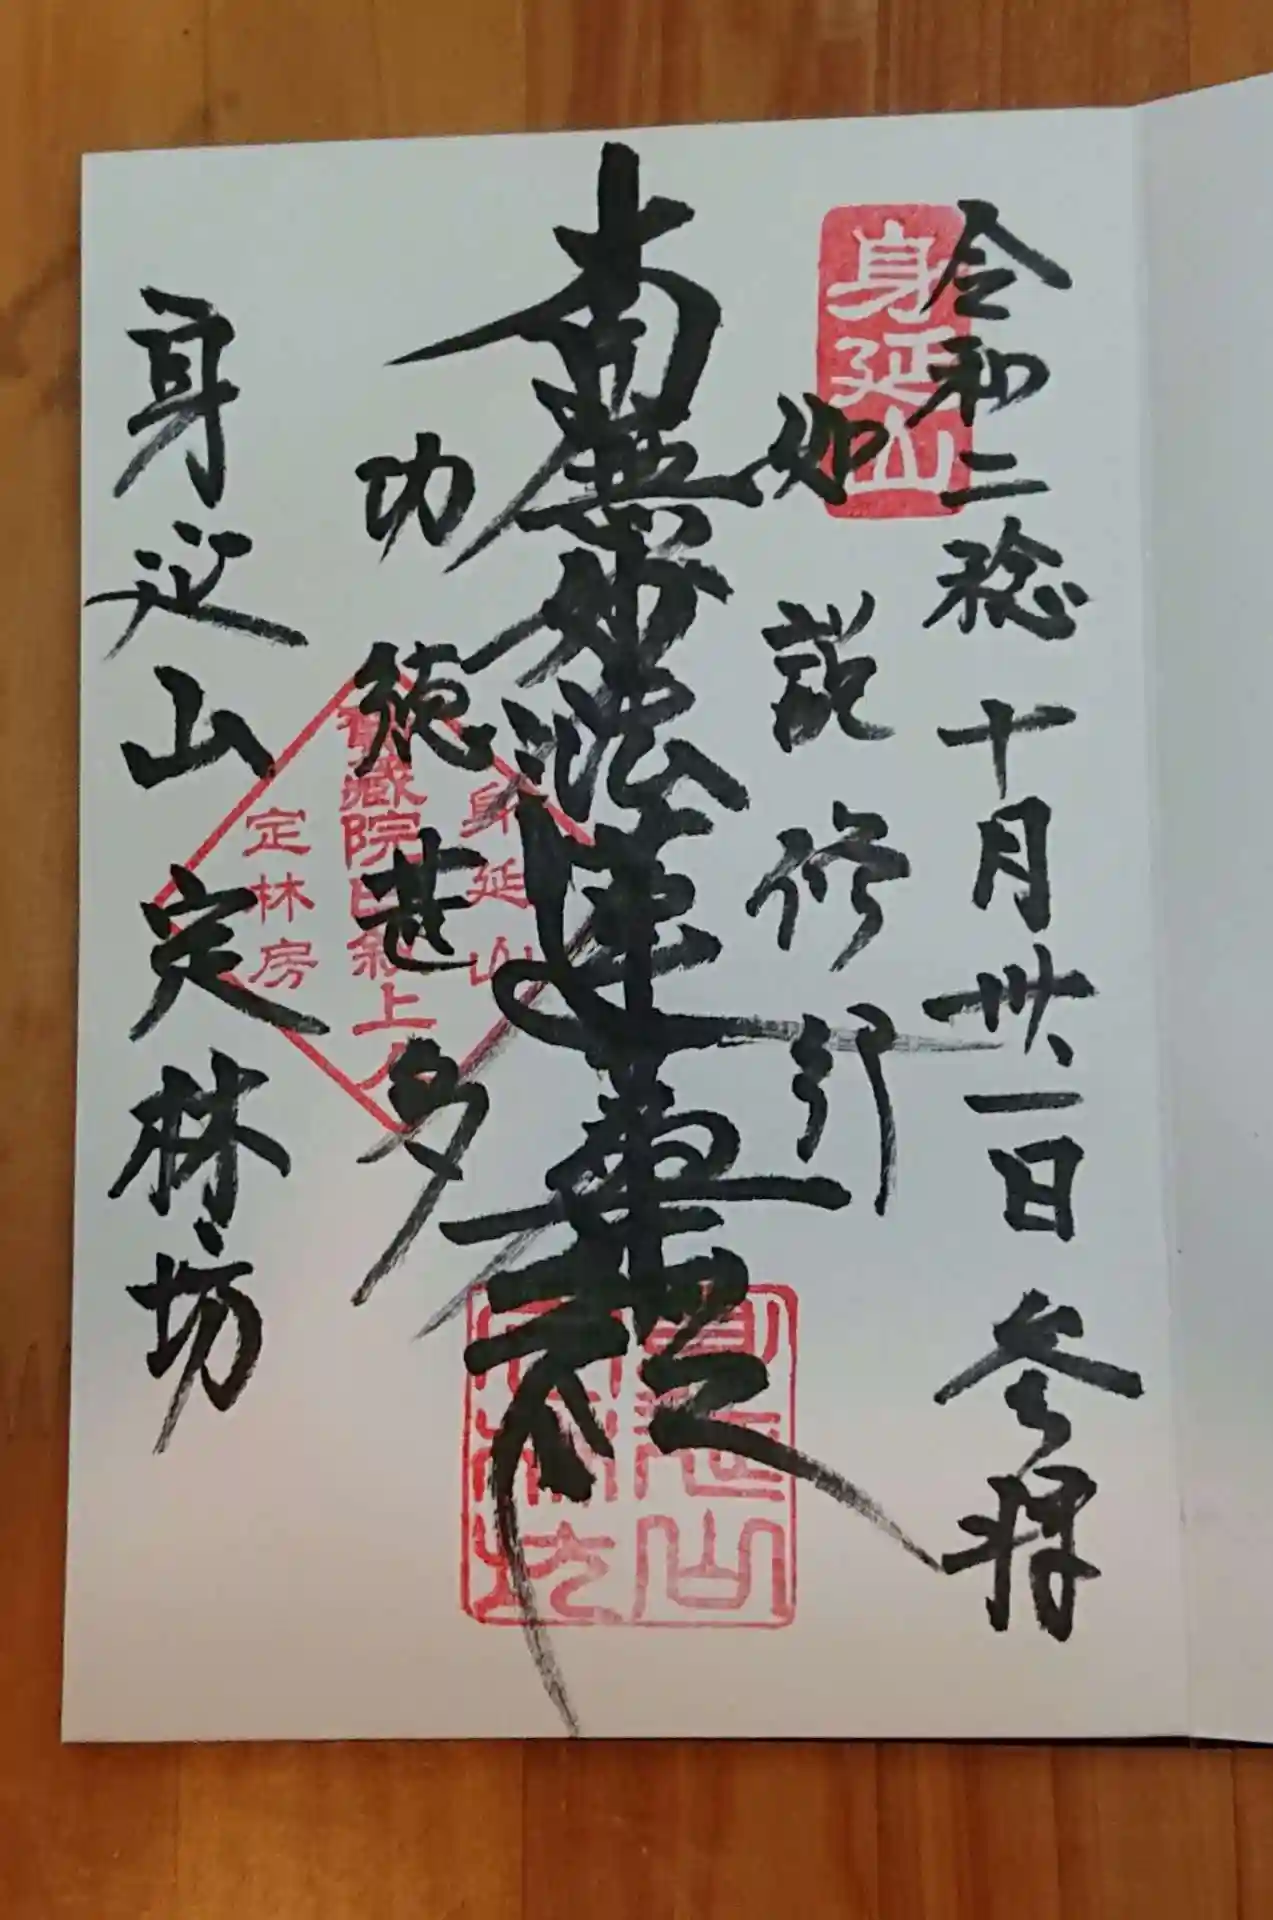 令和二稔十月卅一日参拝
身延山
如説修行
南無妙法蓮華経
功徳甚多
身延山
藏院日叙上人
定林房
身延山定林坊
身延山
定林坊